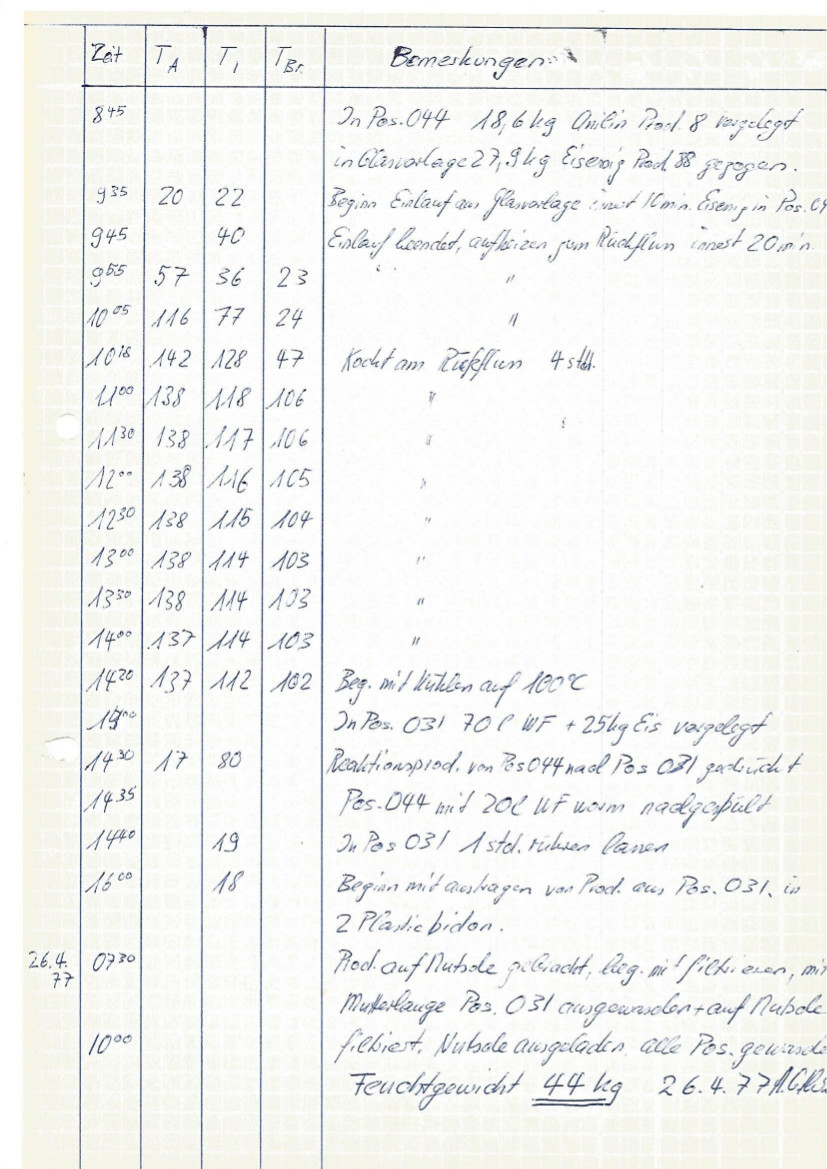 Zeit T_A T_I T_Br. Bemerkungen
8⁴⁵ In Pos. 044 18,6 kg Anilin Prod. 8 vorgelegt
in Glasvorlage 27,9 kg Eisessig Prod. 88 gezogen.
9³⁵ 20 22 Beginn Einlauf aus Glasvorlage innert 10 min. Eisessig in Pos. 04
9⁴⁵ 40 Einlauf beendet, aufheizen zum Rückfluss innert 20 min.
9⁵⁵ 57 36 23 "
10⁰⁵ 116 77 24 "
10¹⁸ 142 128 47 Kocht am Rückfluss 4 std.
11⁰⁰ 138 118 106 "
11³⁰ 138 117 106 "
12⁰⁰ 138 116 105 "
12³⁰ 138 115 104 "
13⁰⁰ 138 114 103 "
13³⁰ 138 114 103 "
14⁰⁰ 137 114 103 "
14²⁰ 137 112 102 Beg. mit Kühlen auf 100°C
In Pos. 031 70 l WF + 25 kg Eis vorgelegt
14³⁰ 17 80 Reaktionsprod. von Pos 044 nach Pos 031 gedrückt
14³⁵ Pos. 044 mit 20 l WF warm nachgespült
14⁴⁰ 19 In Pos 031 1 std. rühren lassen
16⁰⁰ 18 Beginn mit austragen von Prod. aus Pos. 031. in
2 Plastic bidon.
26.4. 07³⁰ Prod. auf Nutsche gebracht, beg. mit filtrieren, mit
77 Mutterlauge Pos. 031 ausgewaschen + auf Nutsche
10⁰⁰ filtriert. Nutsche ausgeladen, alle Pos. gewasche
Feuchtgewicht 44 kg 26.4.77